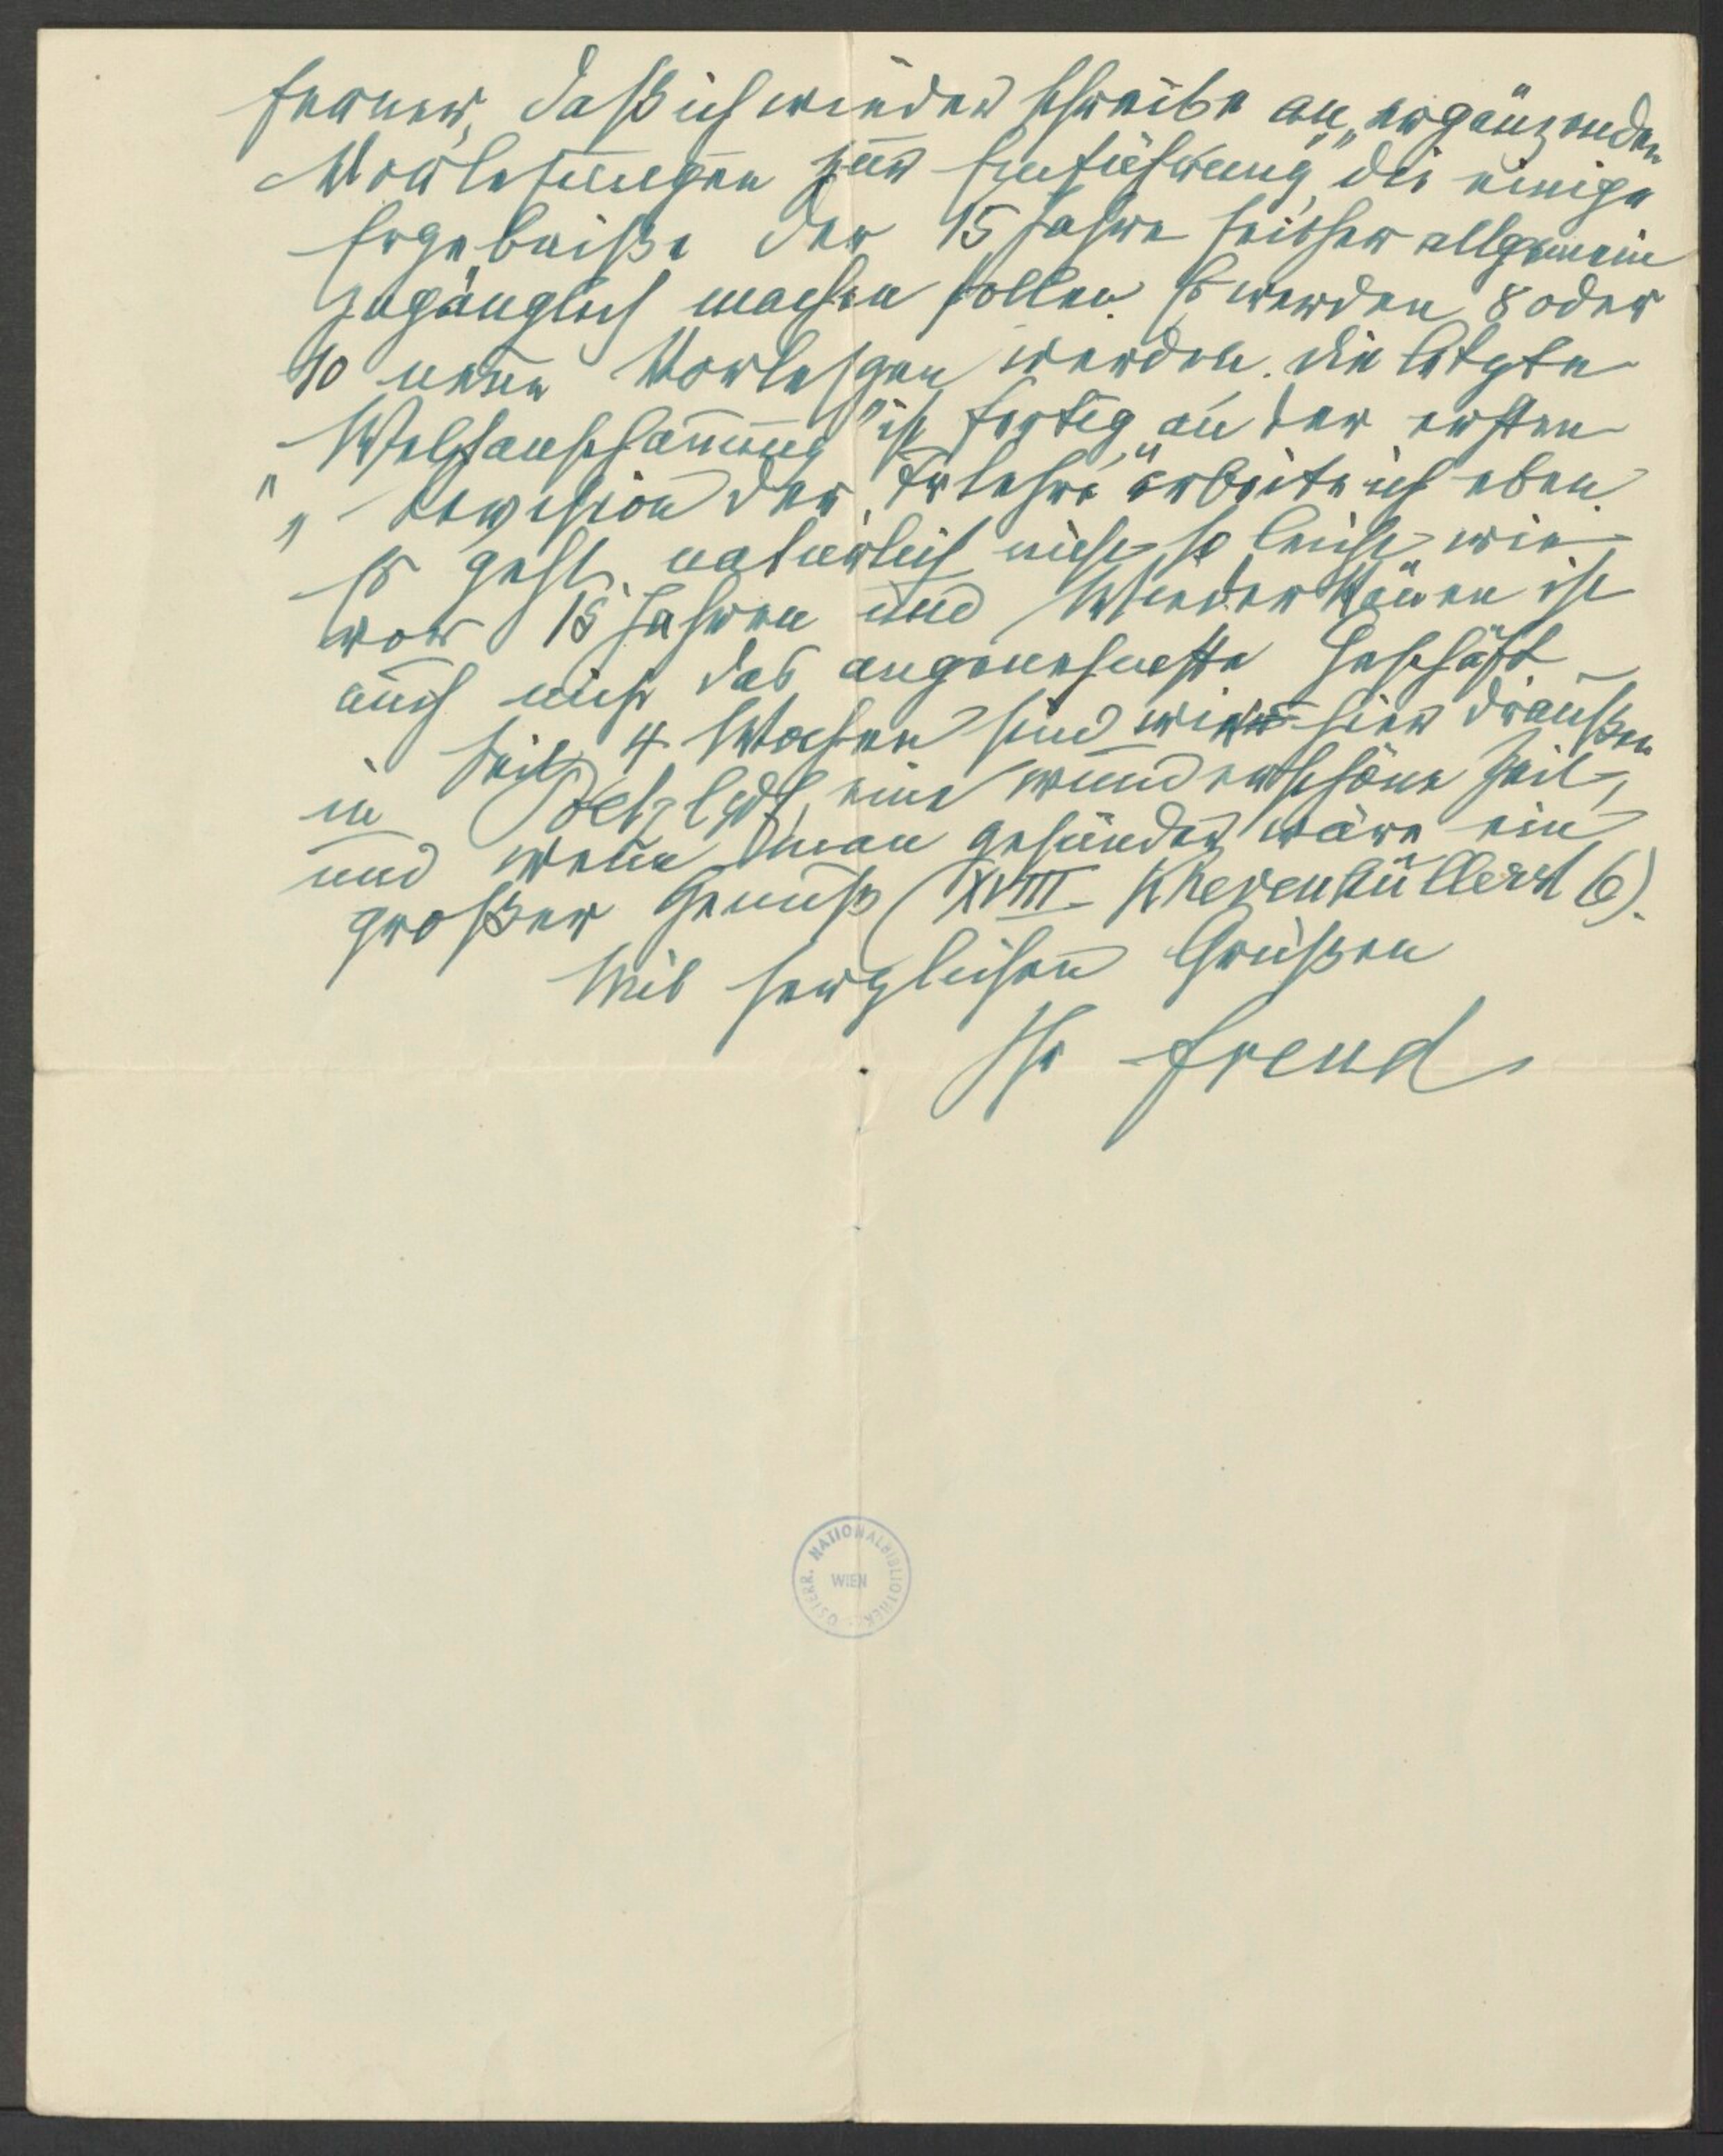 ferner, daß ich wieder schreibe an „ergänzenden
Vorlesungen zur Einführung“, die einige
Ergebniße der 15 Jahre seither allgemein
zugänglich machen sollen. Es werden 8 oder
10 neue Vorlesgen werden. Die letzte
„Weltanschauung“ ist fertig, an der ersten
„Revision der Trlehre“ arbeite ich eben.
Es geht natürlich nicht so leicht wie
vor 15 Jahren und Wiederkäuen ist
auch nicht das angenehmste Geschäft
Seit 4 Wochen sind wir hier draußen
in Poetzlsdf, eine wunderschöne Zeit,
und wenn man gesünder wäre ein
großer Genuß (XVIII Khevenhüllerst 6).
Mit herzlichen Grüßen
Ihr Freud
ÖSTERR. NATIONALBIBLIOTHEK
WIEN